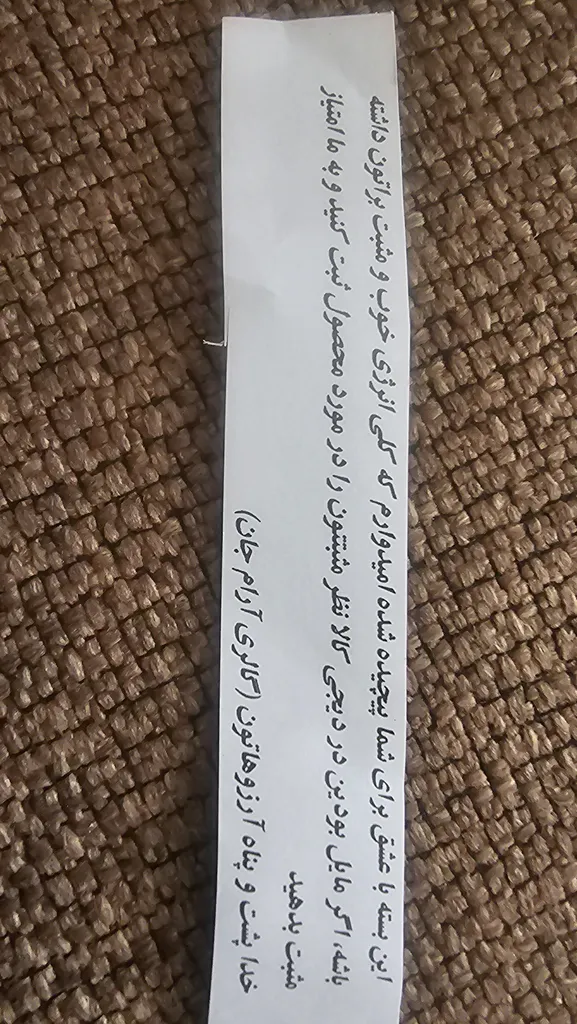 این بسته با عشق برای شما پیچیده شده امیدوارم که کلی انرژی خوب و مثبت براتون داشته
باشه، اگر مایل بودین در دیجی کالا نظر مثبتتون را در مورد محصول ثبت کنید و به ما امتیاز
مثبت بدهید
خدا پشت و پناه آرزوهاتون (گالری آرام جان)